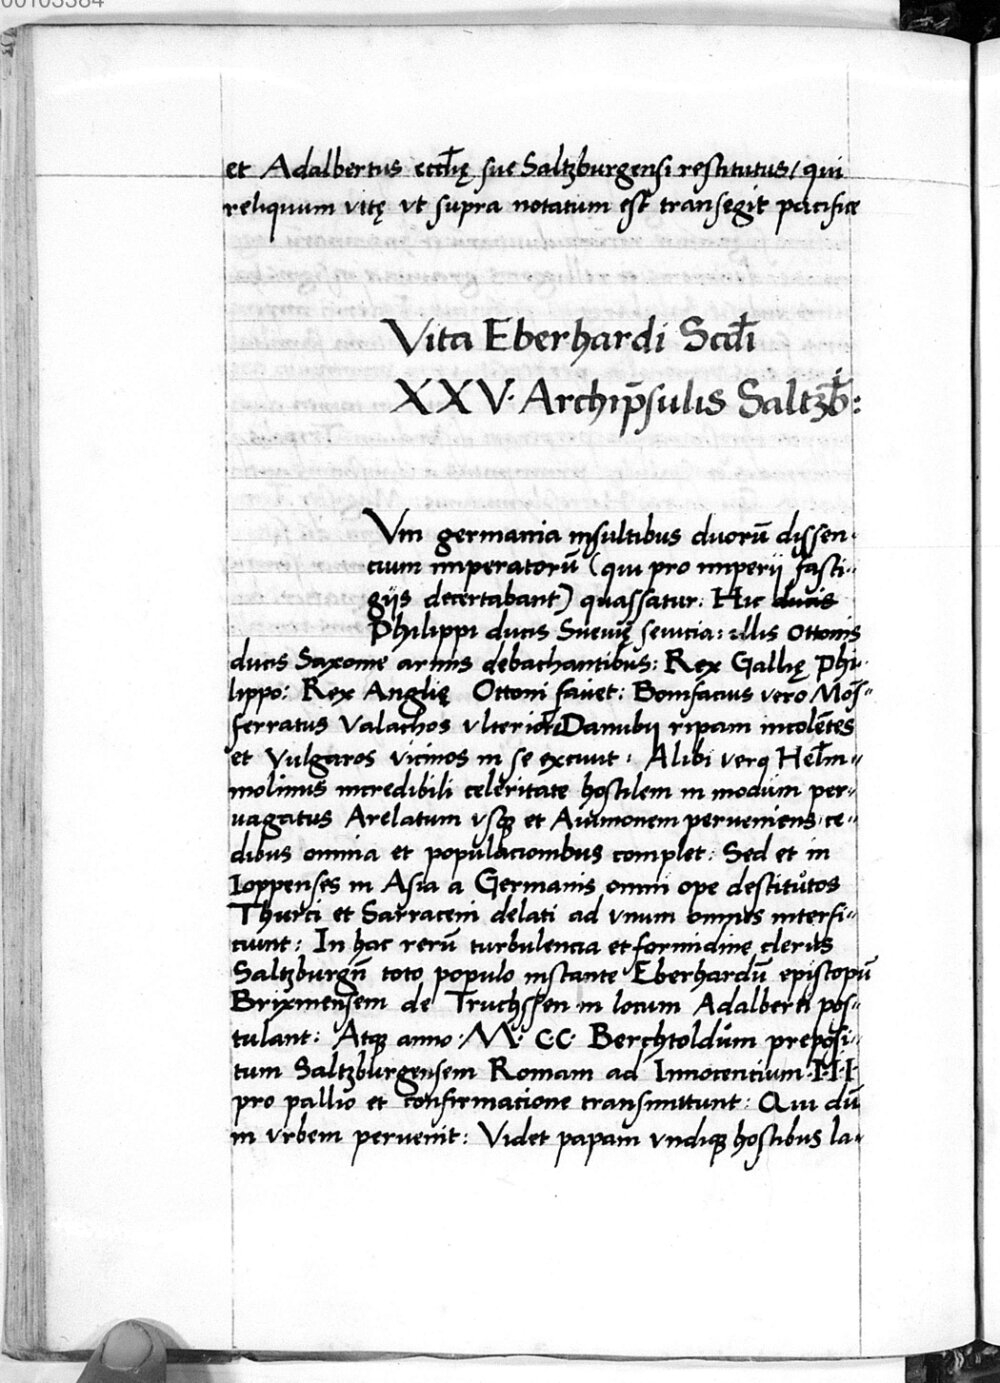 00103384
et Adalbertus eccl̄ię sue Saltzburgensi restitutus / qui
reliquum vitę vt supra notatum est transegit pacifice
Vita Eberhardi Scd̄i
XXV· Archip̄sulis Saltzb̄:
Vm germania insultibus duorū dissen-
cium imperatorū (qui pro imperij fasti-
gijs decertabant) quassatur: Hic ducis
Philippi ducis Sueuię seuicia: illis Ottonis
ducis Saxonie armis debachantibus: Rex Gallię Phi-
lippo: Rex Anglię Ottoni fauet: Bonifacius vero Mōs-
ferratus Valachos vlteriorē Danubij ripam incolētes
et Vulgaros vicinos in se exciuit: Alibi vero Helm-
molinus incredibili celeritate hostilem in modum per-
uagatus Arelatum vsq̧ et Auinionem perueniens ce-
dibus omnia et populacionibus complet: Sed et in
Ioppenses in Asia a Germanis omni ope destitutos
Thurci et Sarraceni delati ad vnum omnes interfi-
ciunt: In hac rerū turbulencia et formidine clerus
Saltzburgn̄ toto populo instante Eberhardū episcopū
Brixinensem de Truchssen in locum Adalberti pos-
tulant: Atq̧ anno ·M· CC· Berchtoldum preposi-
tum Saltzburgensem Romam ad Innocencium ·I·I·I·
pro pallio et confirmacione transmittunt: Qui dū
in vrbem peruenit: Videt papam vndiq̧ hostibus la-